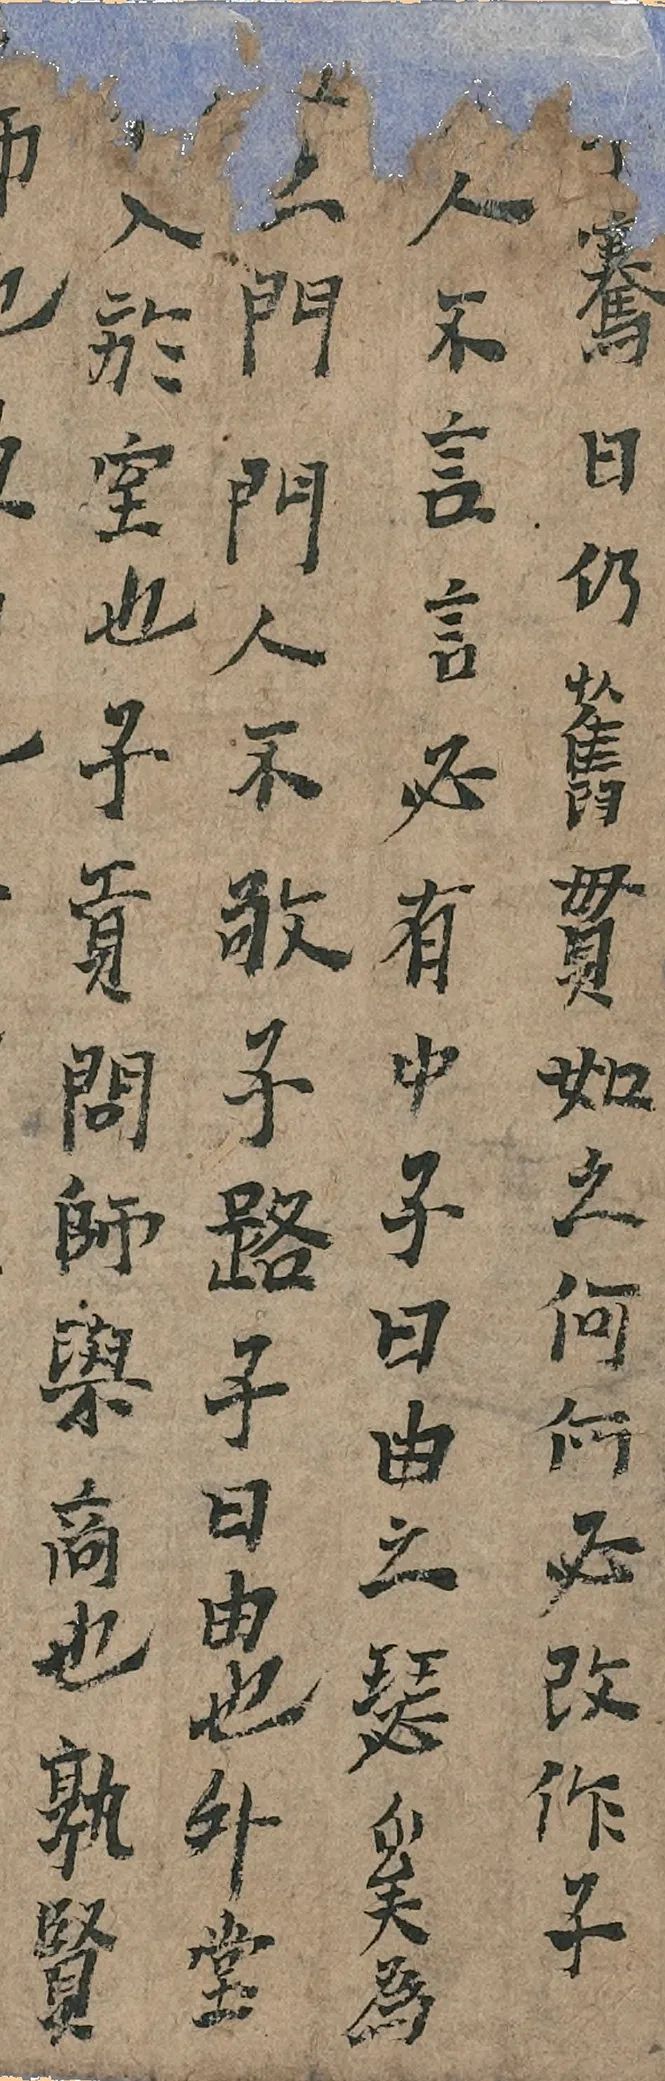 騫曰仍舊貫如之何何必改作子
人不言言必有中子曰由之瑟奚為
之門門人不敬子路子曰由也升堂
入於室也子貢問師與商也孰賢
師也